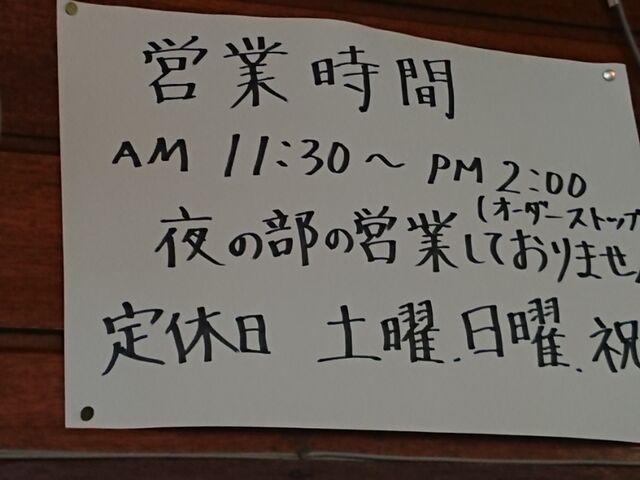 営業時間
AM 11:30〜PM 2:00
(オーダーストップ
夜の部の営業しておりませ
定休日 土曜.日曜.祝